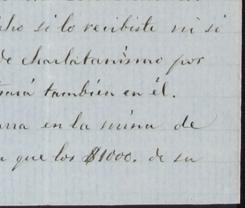 ho si lo recibiste ni si
de charlatanismo por
trará también en él.
rra en la mina de
que los $1000. de su